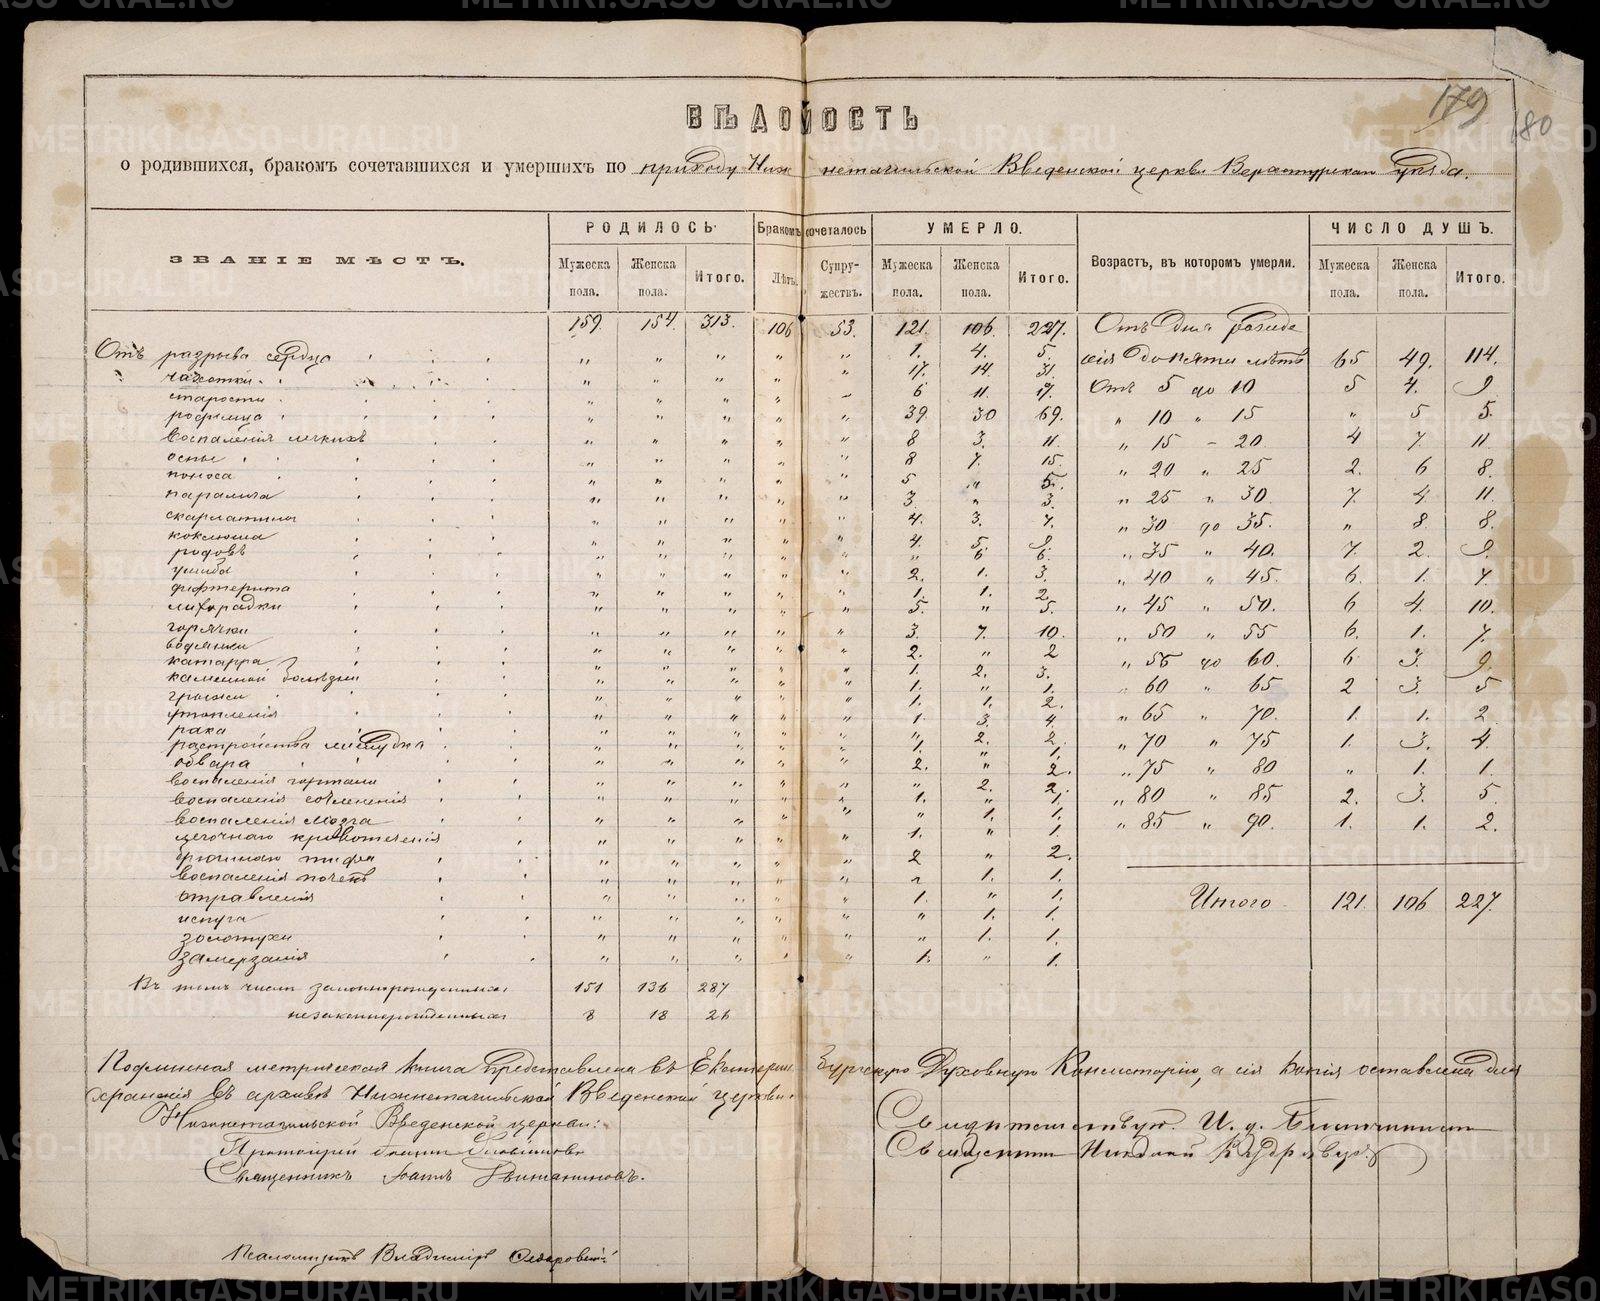 179
180
ВѢДОМОСТЬ
о родившихся, бракомъ сочетавшихся и умершихъ по приходу Нижнетагильской Введенской церкви Верхотурскаго уѣзда.
ЗВАНІЕ МѢСТЪ. РОДИЛОСЬ. Бракомъ сочеталось УМЕРЛО. Возрастъ, въ которомъ умерли. ЧИСЛО ДУШЪ.
Мужеска пола. Женска пола. Итого. Лѣтъ. Супружествъ. Мужеска пола. Женска пола. Итого. Мужеска пола. Женска пола. Итого.
159. 154. 313. 106 53. 121. 106. 227. Отъ дня рожде
Отъ разрыва сердца " " " " " 1. 4. 5. нія до пяти лѣтъ 65 49. 114.
чахотки " " " " " 17. 14. 31. Отъ 5 до 10 5 4. 9.
старости " " " " " 6 11. 17. " 10 " 15 " 5 5.
родимца " " " " " 39. 30 69. " 15 - 20 4 7. 11.
воспаленія легкихъ " " " " " 8 3. 11. " 20 " 25 2. 6 8.
оспы " " " " " 8 7. 15. " 25 " 30. 7. 4. 11.
поноса " " " " " 5 " 5. " 30 до 35. " 8. 8.
паралича " " " " " 3. " 3. " 35 " 40. 7. 2. 9.
скарлатины " " " " " 4. 3. 7. " 40 " 45. 6. 1. 7.
коклюша " " " " " 4. 5. 9. " 45 " 50. 6 4. 10.
родовъ " " " " " " 6. 6. " 50 " 55 6. 1. 7.
ушиба " " " " " 2. 1. 3. " 55 до 60. 6 3. 9.
дифтерита " " " " " 1. 1. 2. " 60 " 65 2 3. 5
лихорадки " " " " " 5. " 5. " 65 " 70. 1. 1. 2
горячки " " " " " 3. 7. 10. " 70 " 75 1. 3. 4.
водянки " " " " " 2. " 2 " 75 " 80 " 1. 1.
катарра " " " " " 1. 2. 3. " 80 " 85 2. 3. 5.
каменной болѣзни " " " " " 1. " 1. " 85 " 90. 1. 1. 2.
грыжи " " " " " 1. 1. 2. Итого 121. 106 227.
утопленія " " " " " 1. 3. 4.
рака " " " " " " 2. 2.
разстройства желудка " " " " " 1. " 1.
обвара " " " " " 2. " 2.
воспаленія гортани " " " " " " 2. 2.
воспаленія сочлененія " " " " " 1. " 1.
воспаленія мозга " " " " " " 1. 1.
легочнаго кровотеченія " " " " " 1. " 1.
брюшнаго тифа " " " " " 2 " 2.
воспаленія почекъ " " " " " " 1. 1.
отравленія " " " " " 1. " 1.
испуга " " " " " " 1. 1.
золотухи " " " " " " 1. 1.
замерзанія " " " " " 1. " 1.
Въ томъ числѣ законнорожденныхъ 151 136 287
незаконнорожденныхъ 8 18 26
Подлинная метрическая книга представлена въ Екатеринбургскую Духовную Консисторію, а сія копія оставлена для
храненія въ архивѣ Нижнетагильской Введенской церкви.
Нижнетагильской Введенской церкви:
Протоіерей
Священникъ Іоаннъ
Псаломщикъ Владиміръ
Свидѣтельствую. И. д. Благочиннаго
Священникъ Николай Кудрявцевъ
METRIKI.GASO-URAL.RU